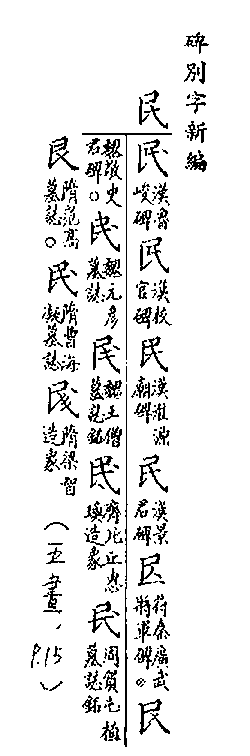 碑別字新編
民
民漢裔峻碑民漢校官碑民漢淮源廟碑民漢景君碑民苻秦廣武將軍碑。民
魏敬史君碑。民魏元彥墓誌民魏王僧墓誌銘民齊比丘惠瑱造象民周賀屯植墓誌銘
民隋范高墓誌。民隋曹海凝墓誌民隋梁智造象
(五畫，P.15)